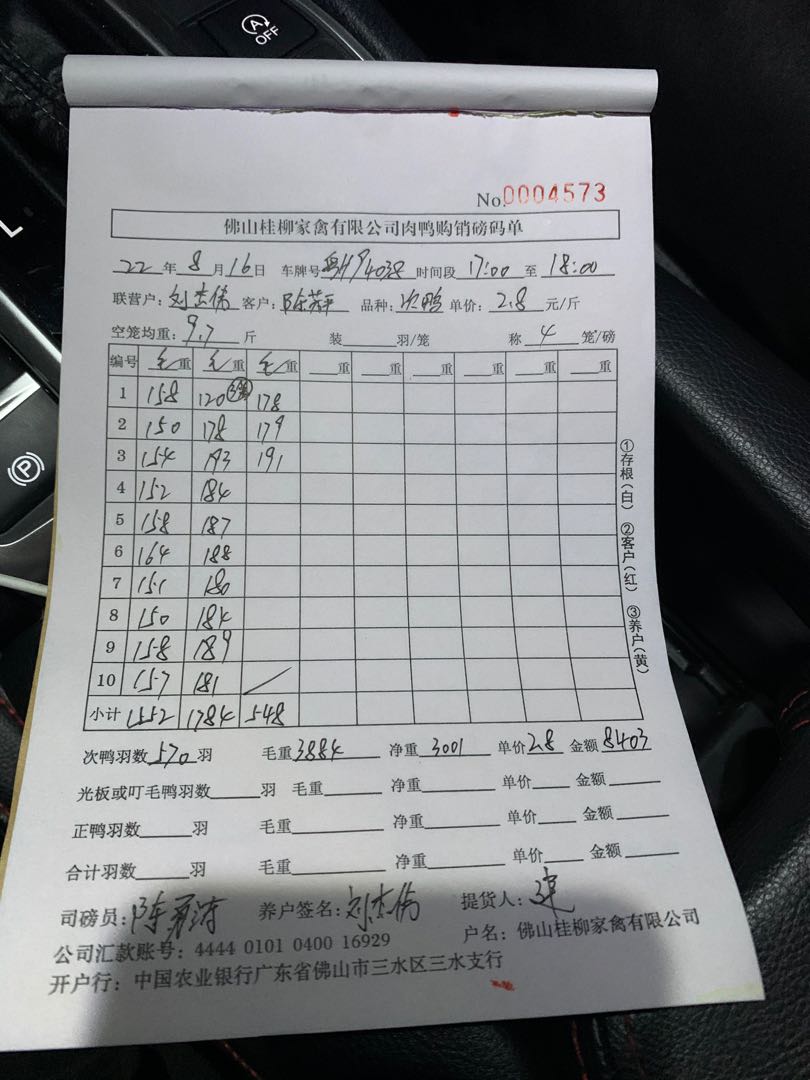 A
OFF
L
P
No.0004573
佛山桂柳家禽有限公司肉鸭购销磅码单
22 年 8 月 16 日 车牌号 粤H94038 时间段 17:00 至 18:00
联营户: 刘杰伟 客户: 陈 品种: 次鸭 单价: 2.8 元/斤
空笼均重: 9.7 斤 装 羽/笼 称 4 笼/磅
编号 毛重 毛重 毛重 重 重 重 重 重 重
1 158 120 178
2 150 178 179
3 154 193 191
4 152 184
5 158 187
6 164 188
7 151 180
8 150 184
9 158 189
10 157 181
小计 1552 1784 548
①存根(白) ②客户(红) ③养户(黄)
次鸭羽数 570 羽 毛重 3884 净重 3001 单价 2.8 金额 8403
光板或叮毛鸭羽数 羽 毛重 净重 单价 金额
正鸭羽数 羽 毛重 净重 单价 金额
合计羽数 羽 毛重 净重 单价 金额
司磅员: 陈 养户签名: 刘杰伟 提货人:
公司汇款账号: 4444 0101 0400 16929 户名: 佛山桂柳家禽有限公司
开户行: 中国农业银行广东省佛山市三水区三水支行